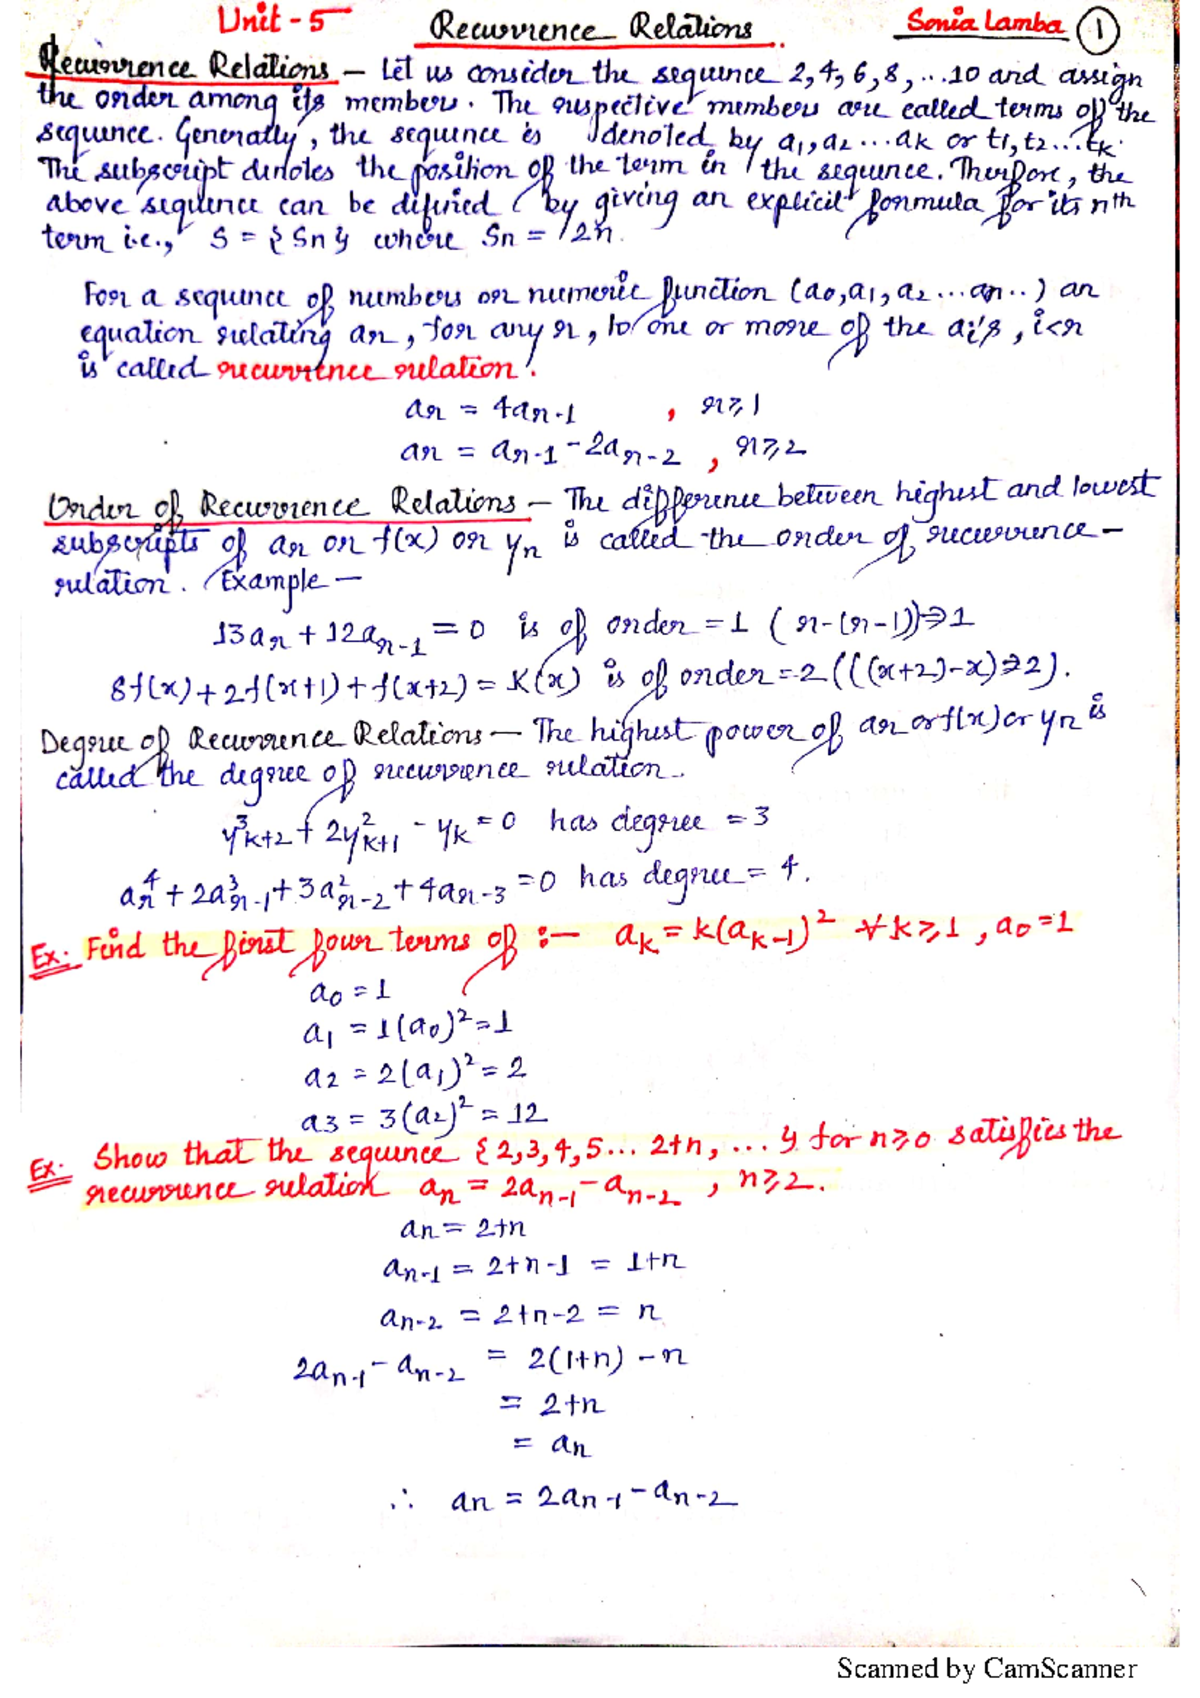 Unit-5 Recurrence Relations Sonia Lamba 1
Recurrence Relations - Let us consider the sequence 2,4,6,8,...10 and assign
the order among its members. The respective members are called terms of the
sequence. Generally, the sequence is denoted by a1,a2...ak or t1,t2...tk.
The subscript denotes the position of the term in the sequence. Therefore, the
above sequence can be defined by giving an explicit formula for its nth
term i.e., S = {Sn} where Sn = 2n.
For a sequence of numbers or numeric function (a0,a1,a2...ar..) an
equation relating ar, for any r, to one or more of the ai's, i<r
is called recurrence relation.
ar = 4ar-1 , r≥1
ar = ar-1 - 2ar-2 , r≥2
Order of Recurrence Relations - The difference between highest and lowest
subscripts of ar or f(x) or yn is called the order of recurrence-
relation. Example -
13ar + 12ar-1 = 0 is of order = 1 (r-(r-1))⇒1
8f(x) + 2f(x+1) + f(x+2) = K(x) is of order = 2 (((x+2)-x)⇒2).
Degree of Recurrence Relations - The highest power of ar or f(x) or yn is
called the degree of recurrence relation.
y³k+2 + 2y²k+1 - yk = 0 has degree = 3
ar⁴ + 2a³r-1 + 3a²r-2 + 4ar-3 = 0 has degree = 4.
Ex. Find the first four terms of :- ak = k(ak-1)² ∀ k≥1, a0=1
a0 = 1
a1 = 1(a0)² = 1
a2 = 2(a1)² = 2
a3 = 3(a2)² = 12
Ex. Show that the sequence {2,3,4,5... 2+n, ...} for n≥0 satisfies the
recurrence relation an = 2an-1 - an-2 , n≥2.
an = 2+n
an-1 = 2+n-1 = 1+n
an-2 = 2+n-2 = n
2an-1 - an-2 = 2(1+n) - n
= 2+n
= an
∴ an = 2an-1 - an-2
Scanned by CamScanner